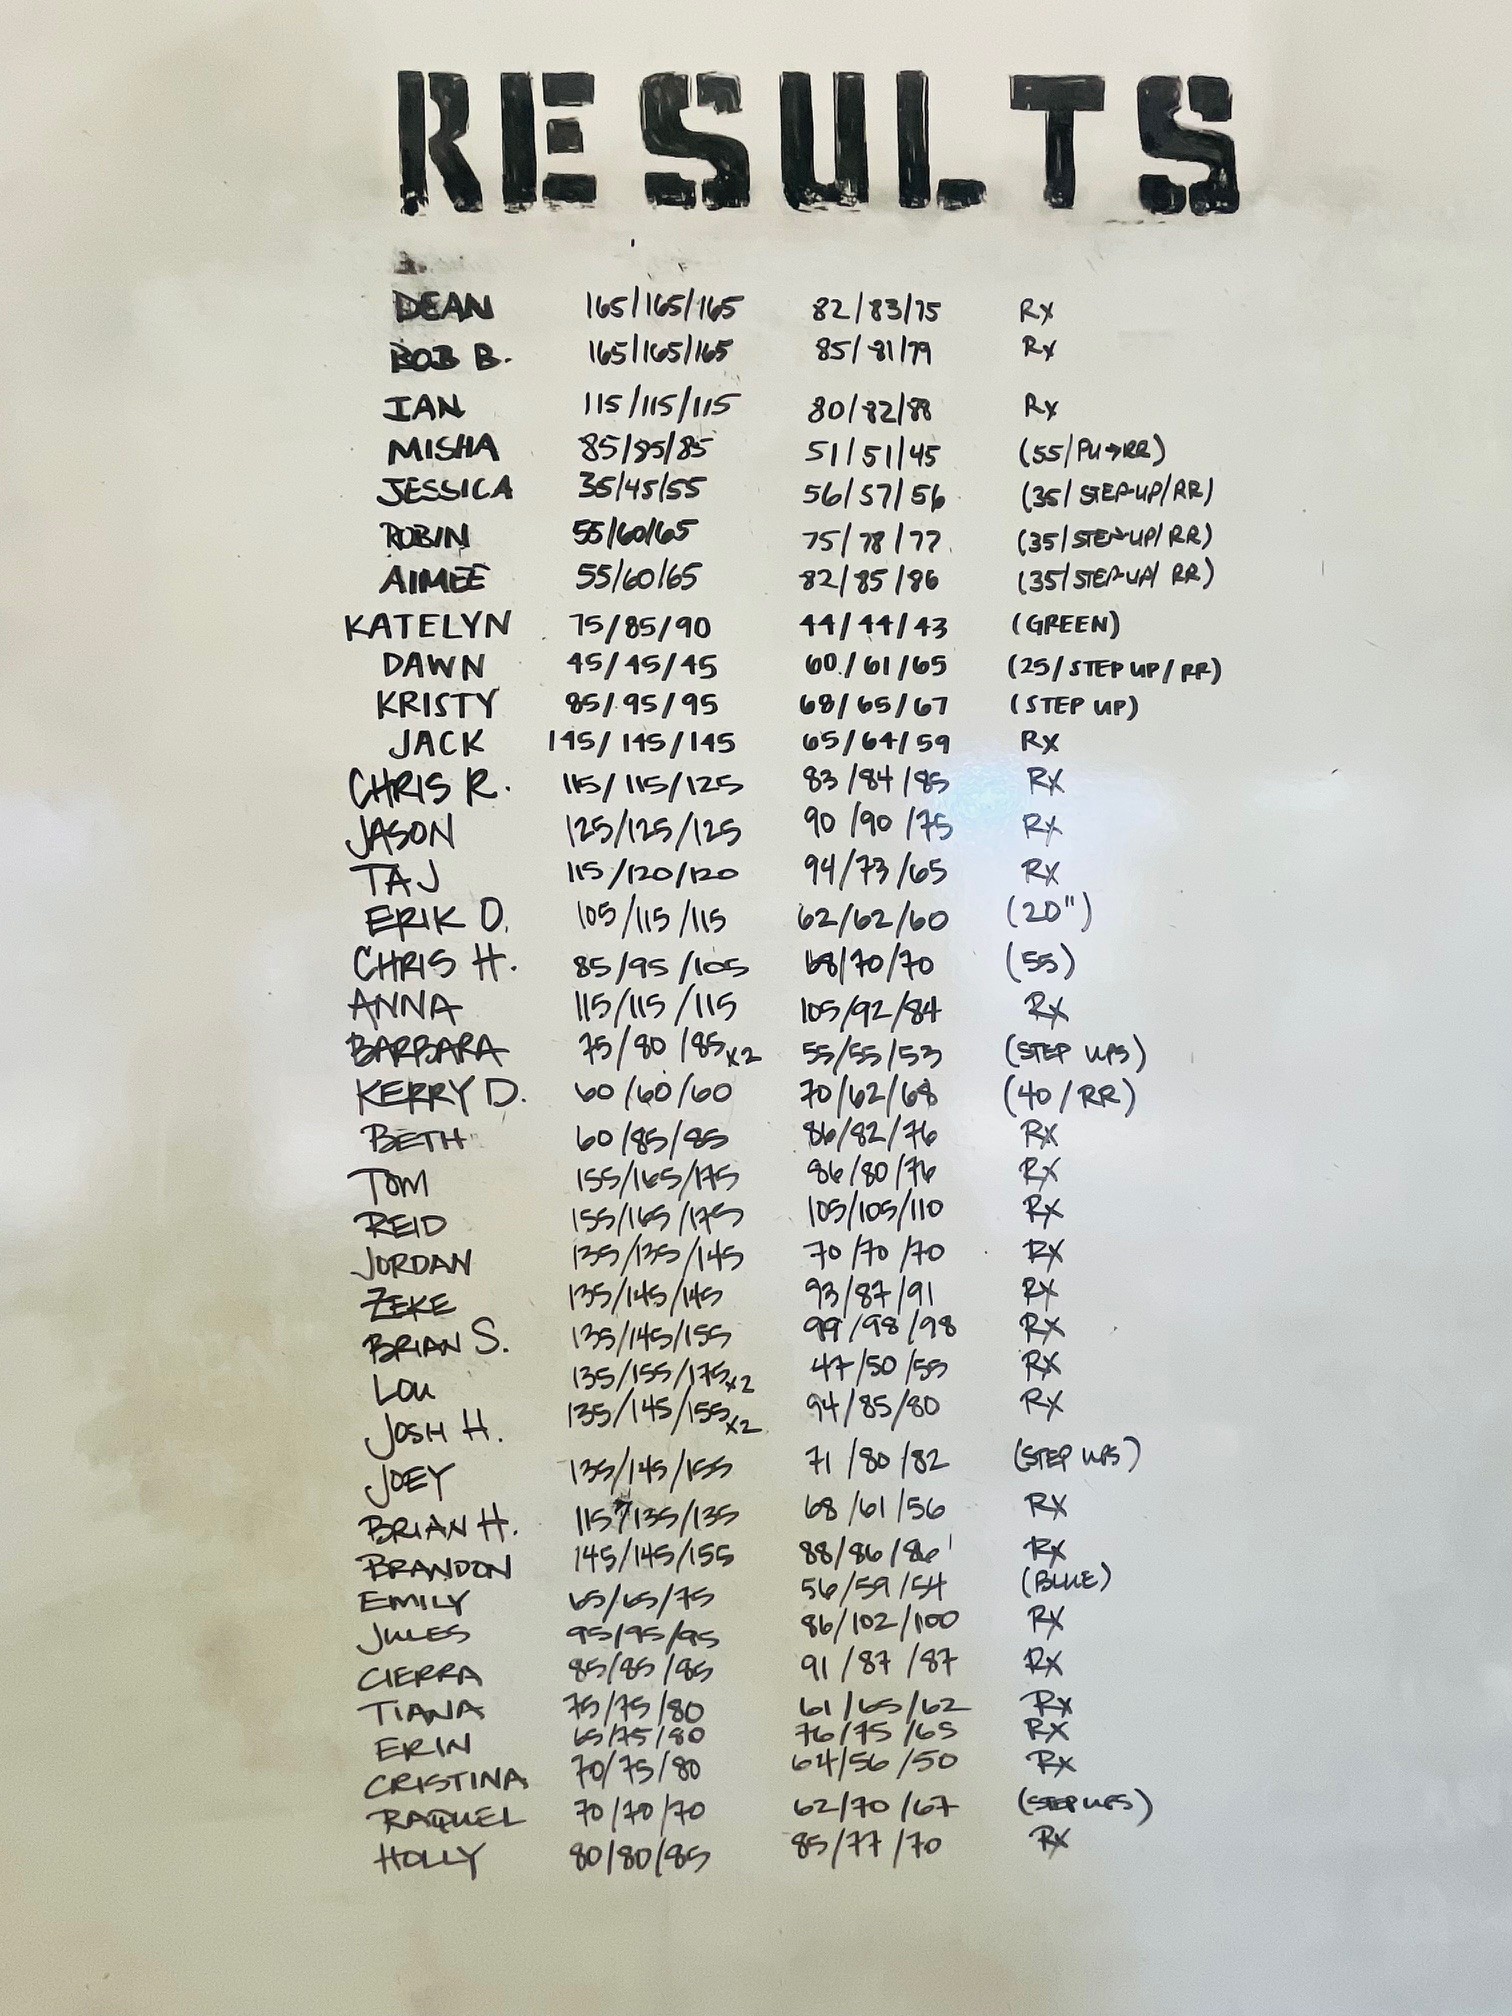 RESULTS
DEAN 165/165/165 82/83/75 Rx
BOB B. 165/165/165 85/81/79 Rx
IAN 115/115/115 80/82/88 Rx
MISHA 85/85/85 51/51/45 (55/PU→RR)
JESSICA 35/45/55 56/57/56 (35/STEP-UP/RR)
ROBIN 55/60/65 75/78/77 (35/STEP-UP/RR)
AIMEE 55/60/65 82/85/86 (35/STEP-UP/RR)
KATELYN 75/85/90 44/44/43 (GREEN)
DAWN 45/45/45 60/61/65 (25/STEP UP/RR)
KRISTY 85/95/95 68/65/67 (STEP UP)
JACK 145/145/145 65/64/59 Rx
CHRIS R. 115/115/125 83/84/85 Rx
JASON 125/125/125 90/90/75 Rx
TAJ 115/120/120 94/73/65 Rx
ERIK O. 105/115/115 62/62/60 (20")
CHRIS H. 85/95/105 68/70/70 (55)
ANNA 115/115/115 105/92/84 Rx
BARBARA 75/80/85x2 55/55/53 (STEP UPS)
KERRY D. 60/60/60 70/62/68 (40/RR)
BETH 60/85/85 86/82/76 Rx
TOM 155/165/175 86/80/76 Rx
REID 155/165/175 105/105/110 Rx
JORDAN 135/135/145 70/70/70 Rx
ZEKE 135/145/145 93/87/91 Rx
BRIAN S. 135/145/155 99/98/98 Rx
LOU 135/155/175x2 47/50/55 Rx
JOSH H. 135/145/155x2 94/85/80 Rx
JOEY 135/145/155 71/80/82 (STEP UPS)
BRIAN H. 115/135/135 68/61/56 Rx
BRANDON 145/145/155 88/86/86 Rx
EMILY 65/65/75 56/59/54 (BLUE)
JULES 95/95/95 86/102/100 Rx
CIERRA 85/85/85 91/87/87 Rx
TIANA 75/75/80 61/65/62 Rx
ERIN 65/75/80 76/75/65 Rx
CRISTINA 70/75/80 64/56/50 Rx
RAQUEL 70/70/70 62/70/67 (STEP UPS)
HOLLY 80/80/85 85/77/70 Rx